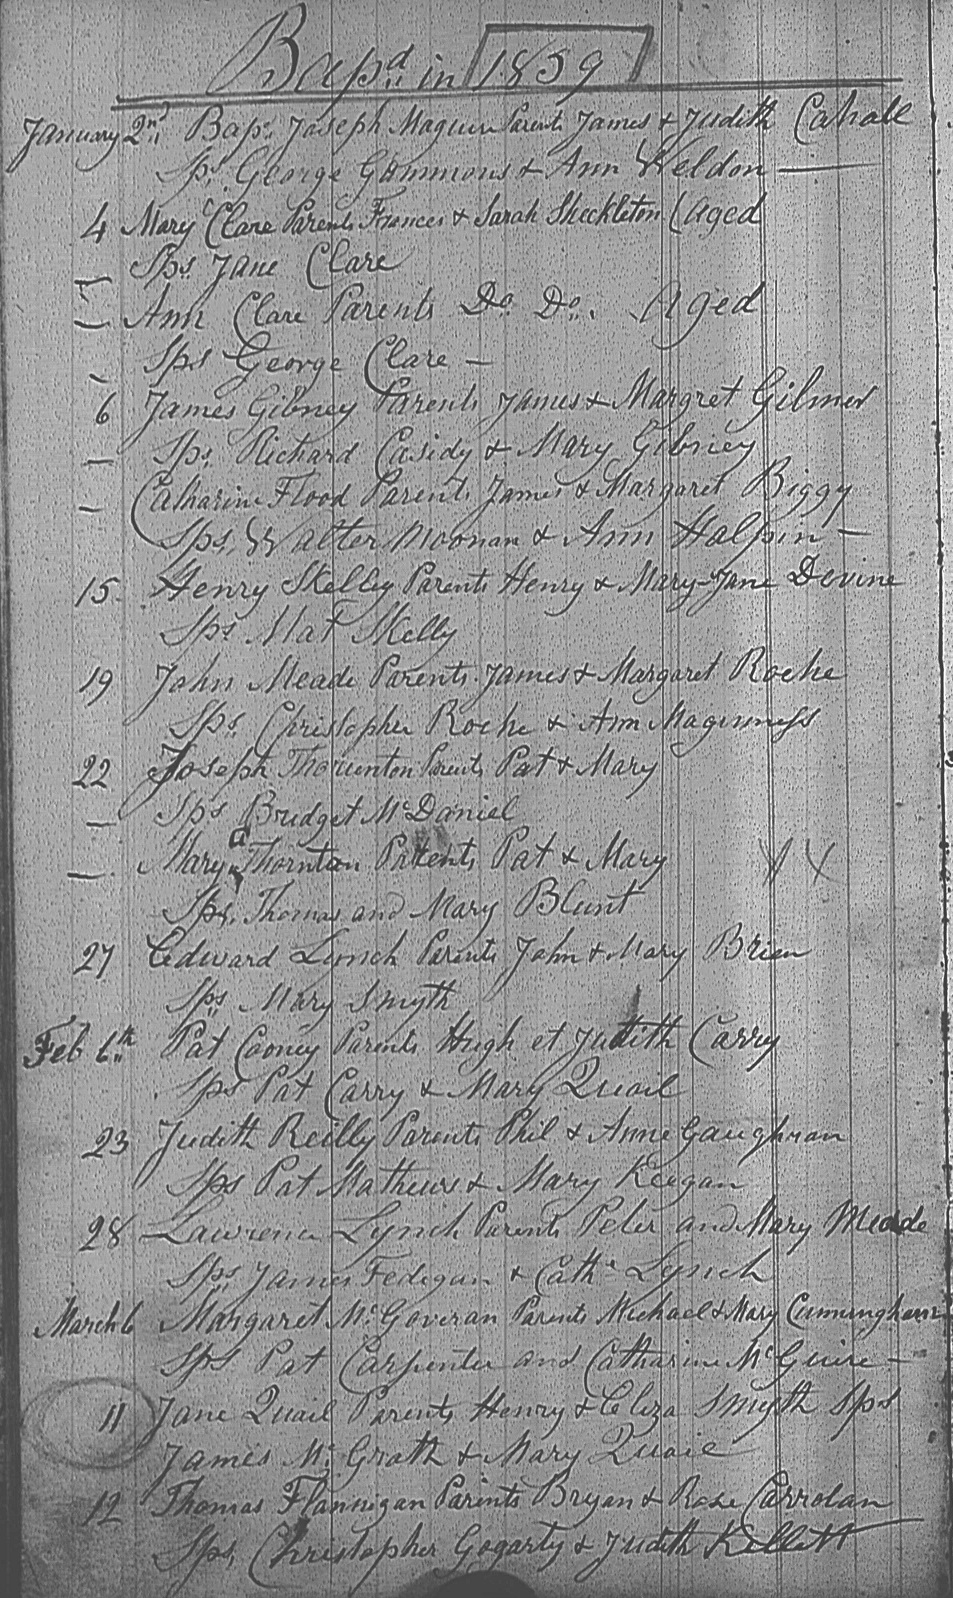 Bapd in 1859
January 2nd Bapd Joseph Maguire Parents James & Judith Cahall
Sps. George Gammons & Ann Weldon —
4 Mary Clare Parents Frances & Sarah Sheckleton (Aged
— Sps. Jane Clare
— Ann Clare Parents Do. Do. Aged
— Sps George Clare —
6 James Gibney Parents James & Margret Gilmer
— Sps. Richard Casidy & Mary Gibney
— Catharine Flood Parents James & Margaret Biggy
Sps. Walter Noonan & Ann Halpin —
15. Henry Skelley Parents Henry & Mary-Jane Devine
Sps. Mat Skelly
19 John Meade Parents James & Margaret Roche
Sps. Christopher Roche & Ann Maginness
22 Joseph Thounton Parents Pat & Mary
— Sps Bridget McDaniel
— Mary a Thornton Parents Pat & Mary
Sps. Thomas and Mary Blunt
27 Edward Lynch Parents John & Mary Brien
Sps Mary Smyth
Feb 6th Pat Cooney Parents Hugh et Judith Carry
Sps Pat Carry & Mary Quail
23 Judith Reilly Parents Phil & Anne Gaughran
Sps Pat Mathews & Mary Keegan
28 Lawrence Lynch Parents Peter and Mary Meade
Sps. James Fedigan & Cathe Lynch
March 6 Margaret McGoveran Parents Michael & Mary Cunningham
Sps Pat Carpenter and Catharine McGuire —
11 Jane Quail Parents Henry & Eliza Smyth Sps
James McGrath & Mary Quail
12 Thomas Flannigan Parents Bryan & Rose Carrolan
Sps. Christopher Gogarty & Judith Kellett